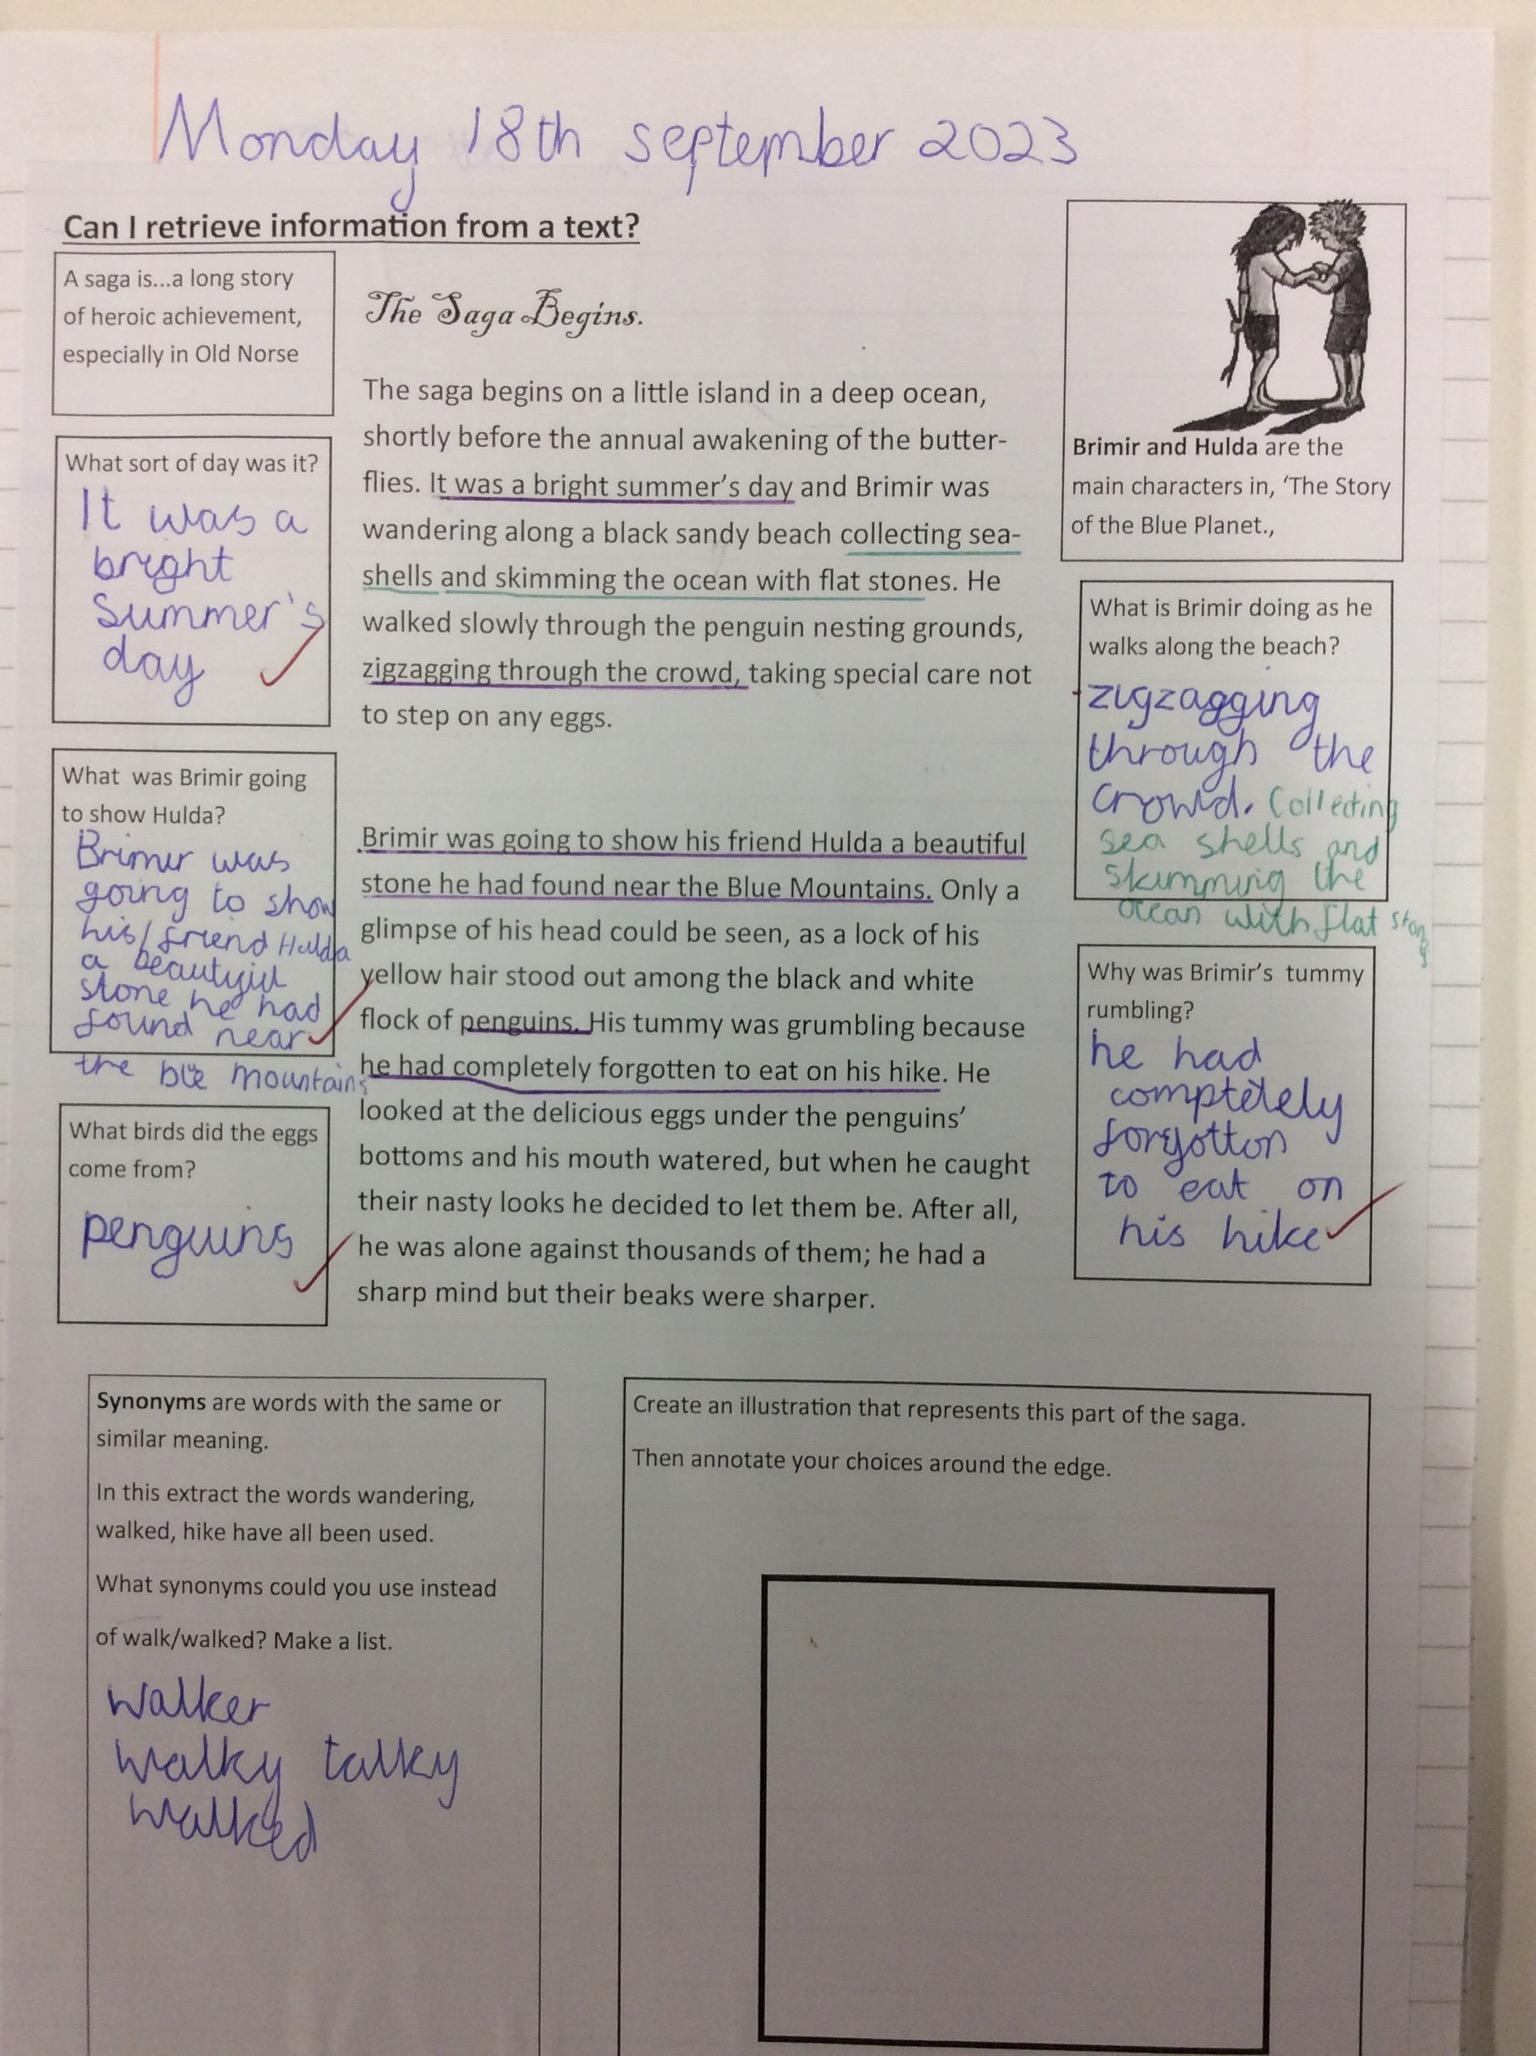 Monday 18th september 2023
Can I retrieve information from a text?
A saga is...a long story
of heroic achievement,
especially in Old Norse
What sort of day was it?
It was a
bright
summer's
day
What was Brimir going
to show Hulda?
Brimir was
going to show
his friend Hulda
a beautyful
stone he had
found near
the ble mountains
What birds did the eggs
come from?
penguins
The Saga Begins.
The saga begins on a little island in a deep ocean,
shortly before the annual awakening of the butter-
flies. It was a bright summer's day and Brimir was
wandering along a black sandy beach collecting sea-
shells and skimming the ocean with flat stones. He
walked slowly through the penguin nesting grounds,
zigzagging through the crowd, taking special care not
to step on any eggs.
Brimir was going to show his friend Hulda a beautiful
stone he had found near the Blue Mountains. Only a
glimpse of his head could be seen, as a lock of his
yellow hair stood out among the black and white
flock of penguins. His tummy was grumbling because
he had completely forgotten to eat on his hike. He
looked at the delicious eggs under the penguins'
bottoms and his mouth watered, but when he caught
their nasty looks he decided to let them be. After all,
he was alone against thousands of them; he had a
sharp mind but their beaks were sharper.
Brimir and Hulda are the
main characters in, 'The Story
of the Blue Planet.,
What is Brimir doing as he
walks along the beach?
zigzagging
through the
crowd. Collecting
sea shells and
skimming the
ocean with flat stones
Why was Brimir's tummy
rumbling?
he had
completely
forgotton
to eat on
his hike
Synonyms are words with the same or
similar meaning.
In this extract the words wandering,
walked, hike have all been used.
What synonyms could you use instead
of walk/walked? Make a list.
walker
walky talky
walked
Create an illustration that represents this part of the saga.
Then annotate your choices around the edge.